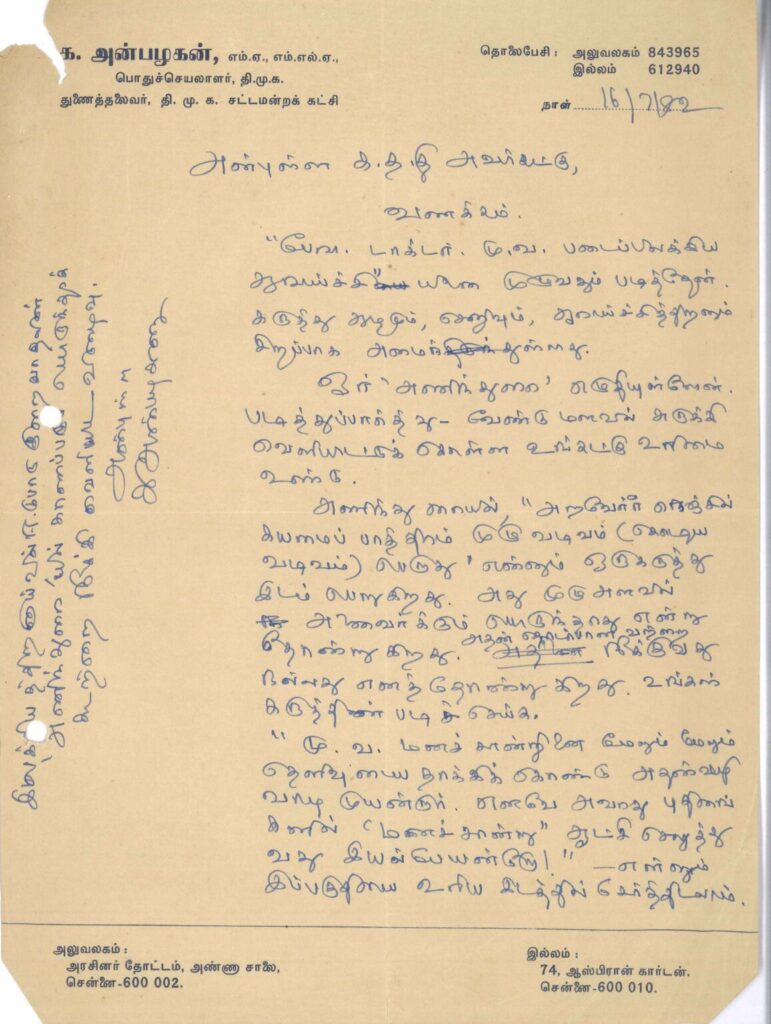 க. அன்பழகன், எம்.ஏ., எம்.எல்.ஏ.,
பொதுச்செயலாளர், தி.மு.க.
துணைத்தலைவர், தி. மு. க. சட்டமன்றக் கட்சி
தொலைபேசி : அலுவலகம் 843965
இல்லம் 612940
நாள் 16/7/82
அன்புள்ள க.த.தி அவர்கட்கு,
வணக்கம்.
"பேரா. டாக்டர். மு.வ. படைப்பிலக்கிய
ஆய்வு" முழுவதும் படித்தேன்.
கருத்து ஆழமும், செறிவும், ஆராய்ச்சித்திறனும்
சிறப்பாக அமைந்துள்ளது.
ஓர் 'அணிந்துரை' எழுதியுள்ளேன்.
படித்துப்பார்த்து - வேண்டுமளவில் சுருக்கி
வெளியிட்டுக் கொள்ள உங்கட்கு உரிமை
உண்டு.
அணிந்துரையில், "அறவோர் நெஞ்சில்
கயமைப் பாத்திரம் முழு வடிவம் (கொடிய
வடிவம்) பெறாது' என்னும் ஒருகருத்து
இடம் பெறுகிறது. அது முழு அளவில்
அனைவர்க்கும் பொருந்தாது என்று
தோன்றுகிறது. அதன் தொடர்பானவற்றை நீக்குவது
நல்லது எனத் தோன்றுகிறது. உங்கள்
கருத்தின்படி செய்க.
"மு. வ. மனச் சான்றினை மேலும் மேலும்
தெளிவுடைய தாக்கிக் கொண்டு அதன்வழி
வாழ முயன்றார். எனவே அவரது புதினங்
களில் "மனச் சான்று" ஆட்சி செலுத்து
வது இயல்பேயன்றோ!" - என்னும்
இப்பகுதியை உரிய இடத்தில் சேர்த்திடலாம்.
அணிந்துரை'யில் காணப்படும் பொருந்தாக்
கூற்றை நீக்கி வெளியிட விழைவு.
அன்புள்ள
க அன்பழகன்
அலுவலகம் :
அரசினர் தோட்டம், அண்ணா சாலை,
சென்னை-600 002.
இல்லம் :
74, ஆஸ்பிரான் கார்டன்.
சென்னை-600 010.